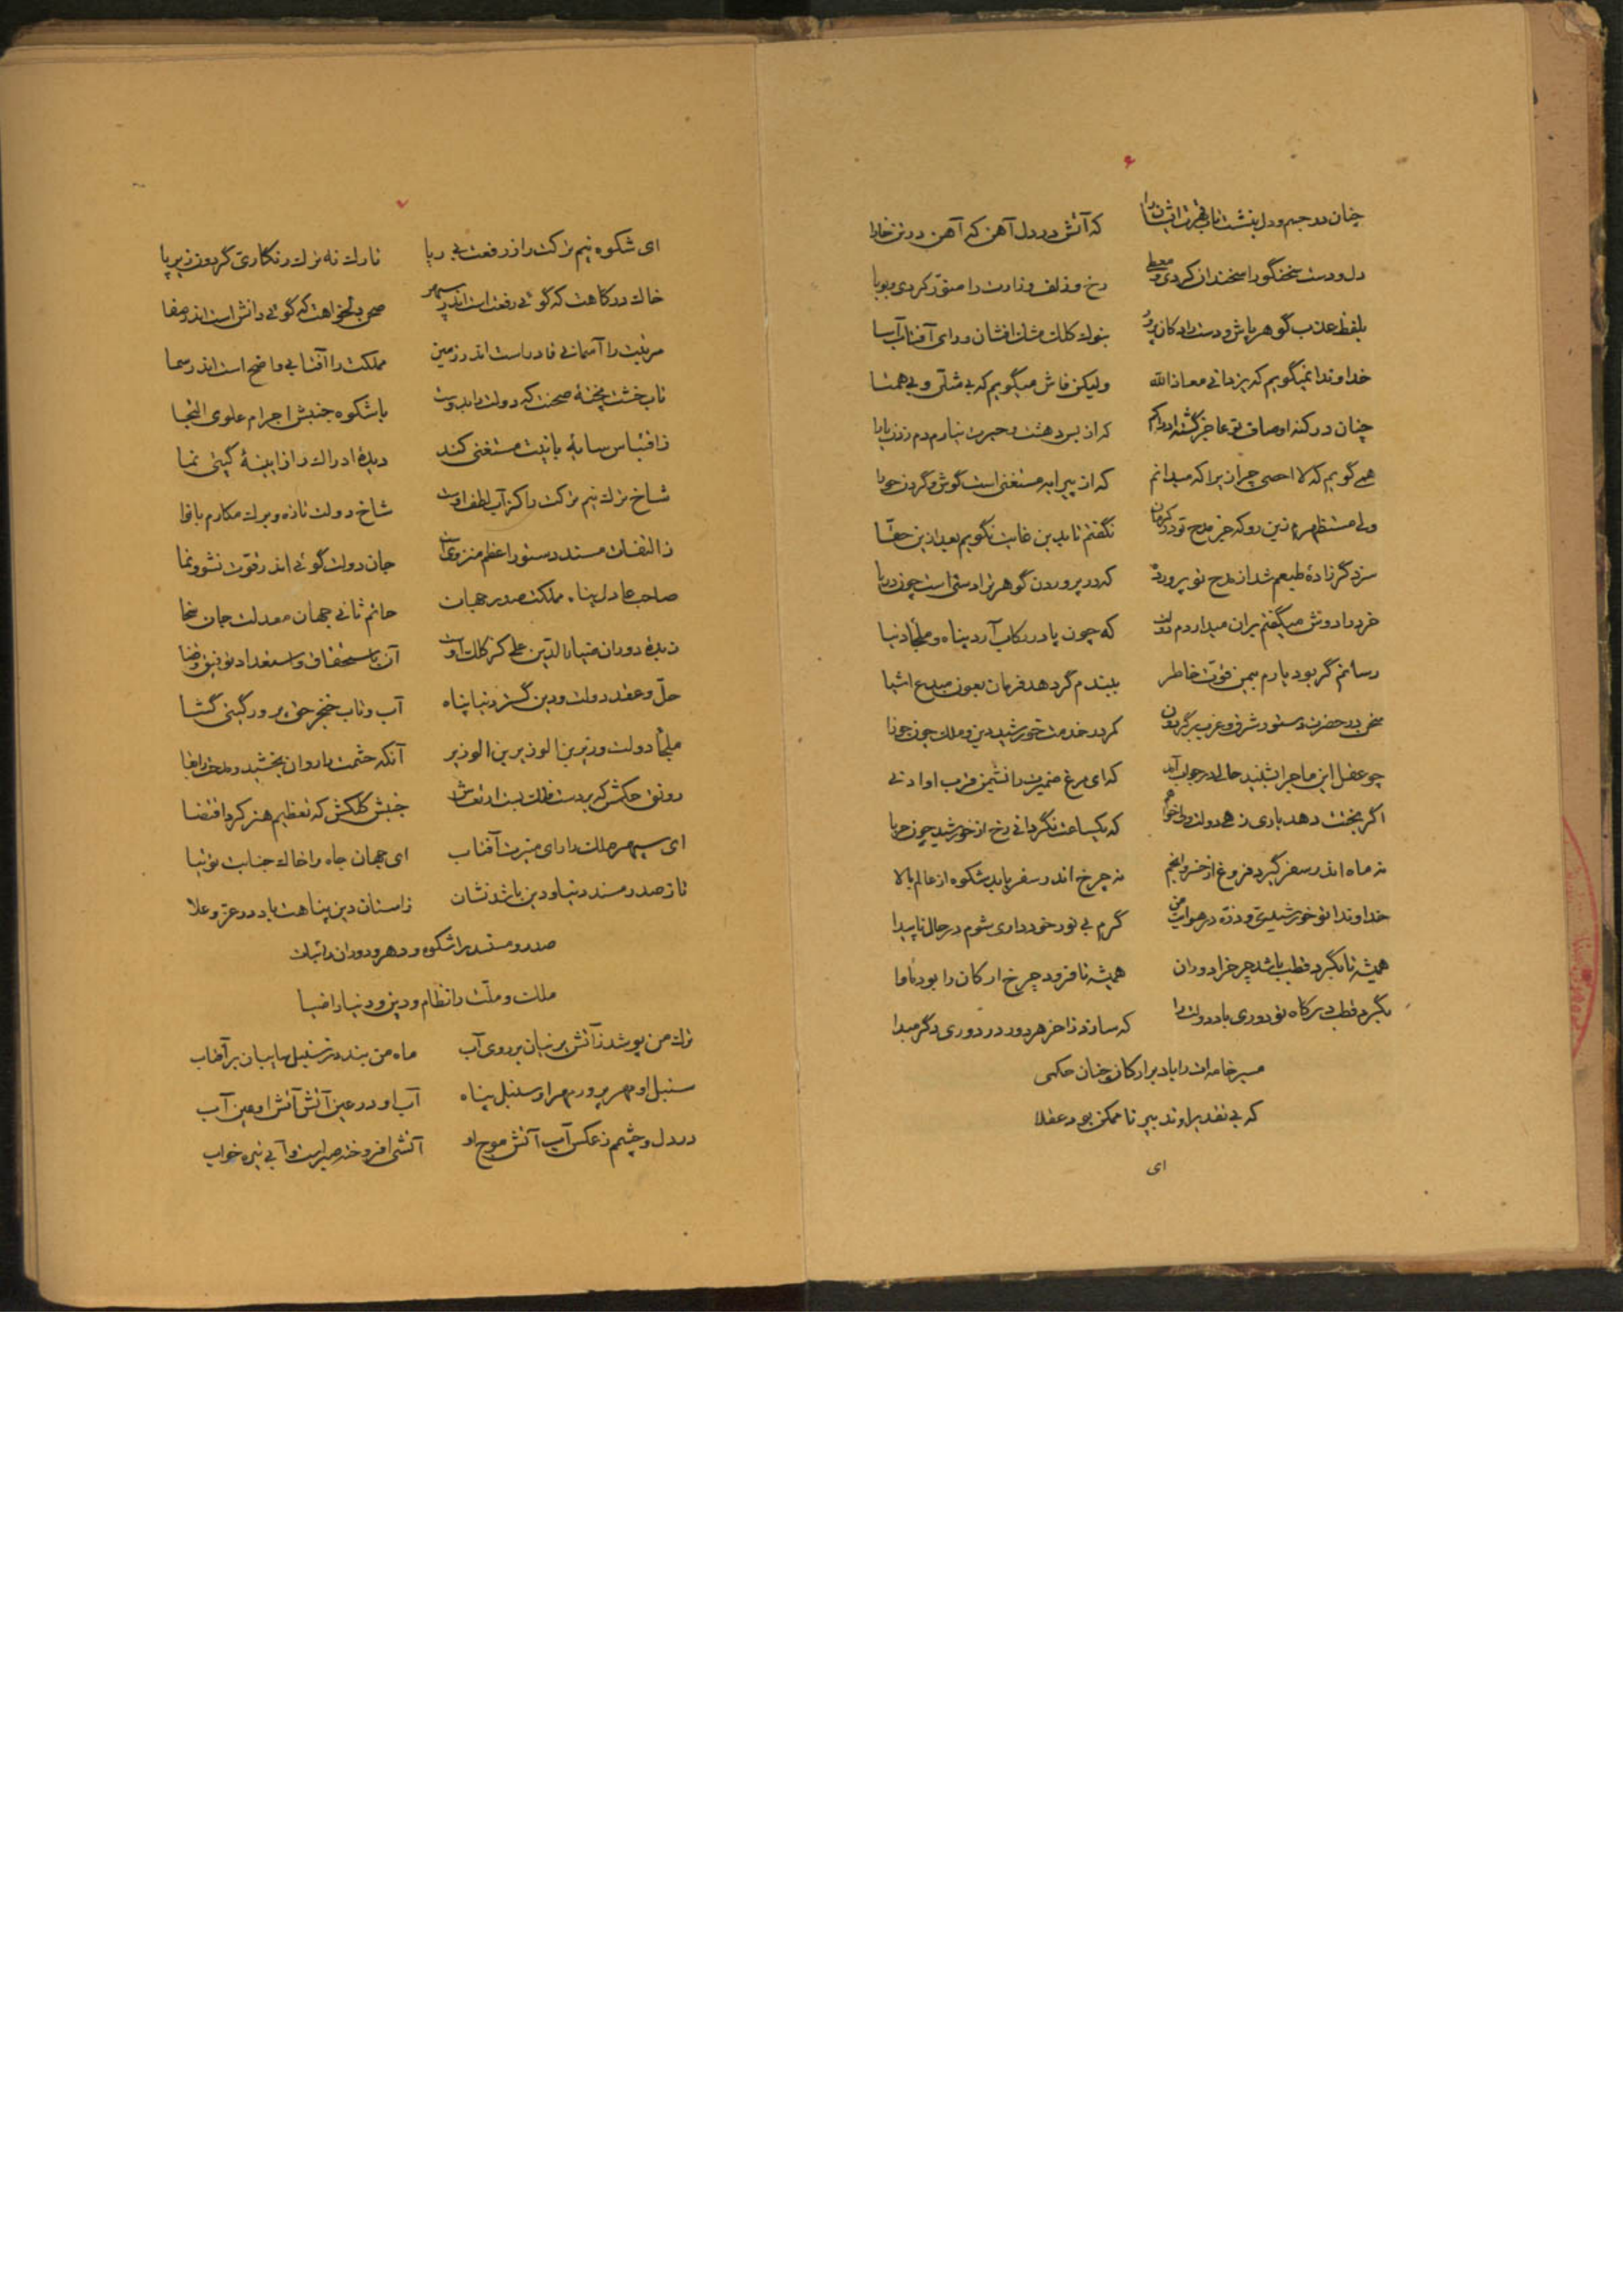 ۶
چنان در جسم و دل بنشست تاب قهرت اشان را که آتش در دل آهن که آهن در تن خارا
دل و دست سخنگو را سخندان کردی و معطی رخ و زلف وزارت را منور کردی و بویا
بلفظ عذب گوهر پاش و دست راد کان پرور بنوک کلک مشک افشان و رای آفتاب آسا
خداوندا نمیگویم که یزدانی معاذالله ولیکن فاش میگویم که بی مثلی و بی همتا
چنان در کنه اوصاف تو عاجز گشته ادراکم که از بس دهشت و حیرت نیارم دم زدن یارا
همی گویم که لا احصی چرا زیرا که میدانم که از پیرایه مستغنی است گوش و گردن حورا
ولی مستظهرم زین رو که جز مدح تو در کرمان نگفتم تا بدین غایت نگویم بعد ازین حقا
سزد گر زادهٔ طبعم شد از مدح تو پرورده که در پروردن گوهر نزادستی است چون دریا
خرد را دوش میگفتم بر آن میداردم دولت که چون پا در رکاب آرد پناه و ملجأ دنیا
رسانم گر بود یارم بیمن قوت خاطر ببندم گر دهد فرمان بعون مبدع اشیا
سخن در حضرت دستور شرق و غرب بر گردون کمر در خدمت خورشید دین و ملک چون جوزا
چو عقل این ماجرا بشنید حالی در جواب آمد که ای مرغ ضمیرت را نشیمن قرب او ادنی
اگر بختت دهد یاری زهی دولت ولی خواهم که یکساعت نگردانی رخ از خورشید چون حربا
نه ماه اندر سفر گیرد فروغ از خسرو انجم نه چرخ اندر سفر یابد شکوه از عالم بالا
خداوندا تو خورشیدی و ذره در هوایت من گرم بی نور خود داری شوم در حال ناپیدا
همیشه تا بگرد قطب باشد چرخ را دوران همیشه تا فرود چرخ ارکان را بود مأوا
بگرد قطب درگاه تو دوری باد دولت را که سازد ز آخر هر دور در دوری دگر مبدا
مسیر خامه ات را باد بر ارکان چنان حکمی
که بی تقدیر او تدبیر ناممکن بود عقلا
ای
۷
ای شکوه نیم ترکت را ز رفعت بی ریا تارک نه ترک زنگاری گردون زیر پا
خاک درگاهت که گوئی رفعت است اندر سپهر صحن دلخواهت که گوئی دانش است اندر صفا
مرتبت را آسمانی قادر است اندر زمین مملکت را آفتابی واضح است اندر سما
تاب خشت پختهٔ صحنت که دولت را بدوست با شکوه جنبش اجرام علوی التجا
ز اقتباس سایهٔ یابنت مستغنی کند دیدهٔ ادراک را ز آیینهٔ گیتی نما
شاخ ترک نیم ترکت را کز آب لطف اوست شاخ دولت تازه و برگ مکارم با نوا
ز التفات مسند دستور اعظم منزوی است جان دولت گوئی اندر قوت نشو و نما
صاحب عادل پناه مملکت صدر جهان حاتم ثانی جهان معدلت جان سخا
زبدهٔ دوران ضیاء الدین علی کز کلک اوست آن باستحقاق و استعداد توفیق رضا
حل و عقد دولت و دین گستر دنیا پناه آب و تاب خنجر حق پرور گیتی گشا
ملجأ دولت وزیر بن الوزیر بن الوزیر آنکه حشمت را روان بخشید و مدحت را بقا
رونق حکمش که بر دست فلک بست ارتعاش جنبش کلکش که تعظیم هنر کرد اقتضا
ای سپهر ملک را رای منیرت آفتاب ای جهان جاه را خاک جنابت توتیا
تا ز صدر و مسند دنیا و دین باشد نشان ز آستان دین پناهت باد در عز و علا
صدر و مسند را شکوه و دهر و دوران را ثبات
ملک و ملت را نظام و دین و دنیا را ضیا
ترک من پوشد ز آتش پرنیان بر روی آب ماه من بندد ز سنبل سایبان بر آفتاب
سنبل او مهر پرور مهر او سنبل پناه آب او در عین آتش آتش او عین آب
در دل و چشمم ز عکس آب آتش موج او آتشی افروخته صبر است و آبی تیره خواب